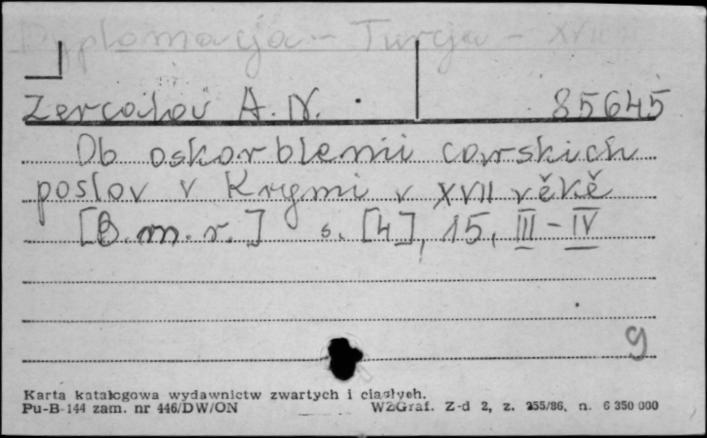 Dyplomacja - Turcja - XVII
Zercalov A. N. 85645
Ob oskorblenii carskich
poslov v Krymi v XVII věkě
[B.m.r.] s. [4], 15, III - IV
9
Karta katalogowa wydawnictw zwartych i ciągłych.
Pu-B-144 zam. nr 446/DW/ON WZGraf. Z-d 2, z. 255/86, n. 6 350 000